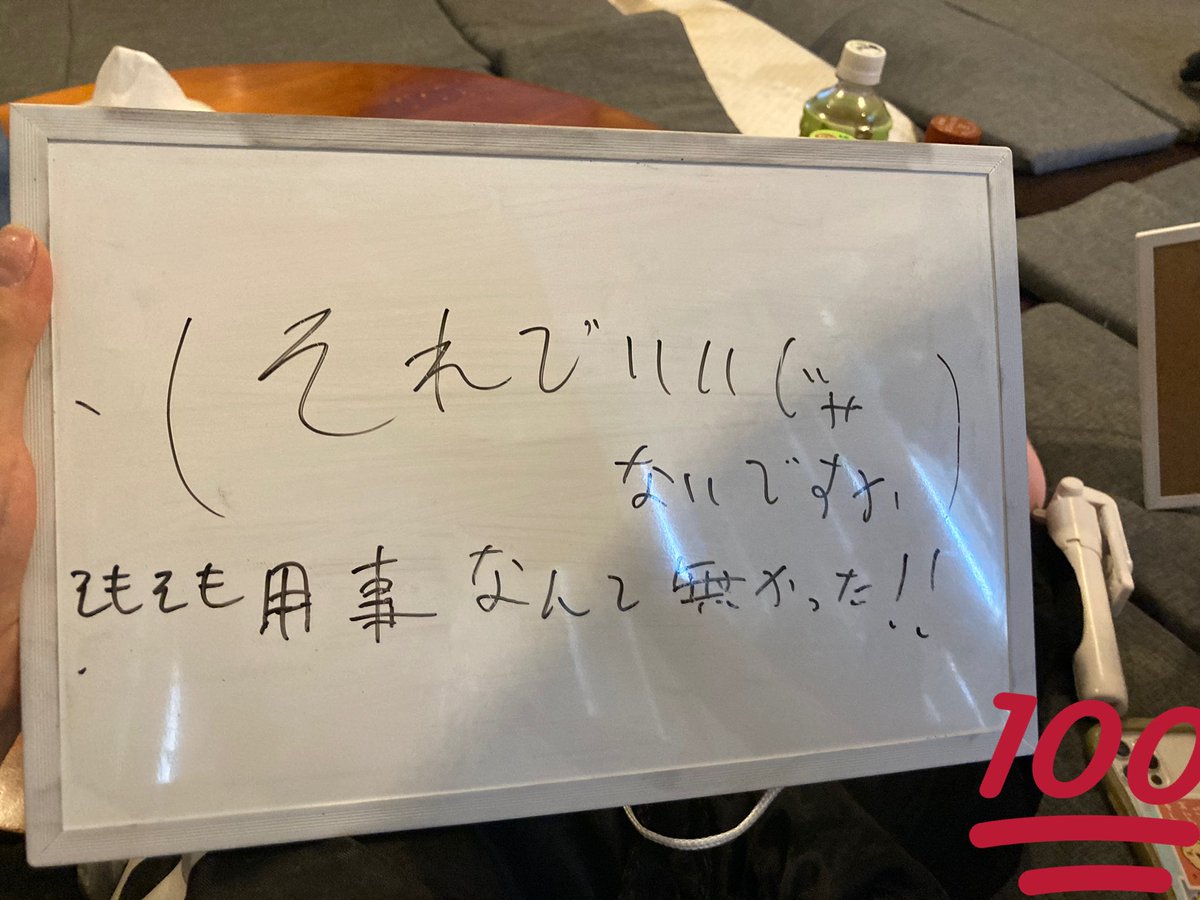 (それでいいじゃ
ないですか)
そもそも用事なんて無かった!!
100